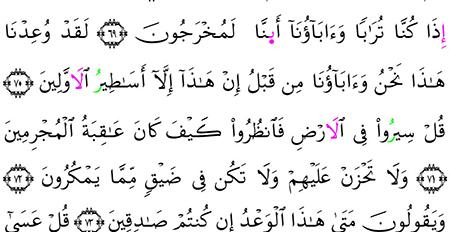 إِذَا كُنَّا تُرَٰبًا وَءَابَآؤُنَآ أَىِٕنَّا لَمُخْرَجُونَ ٦٩ لَقَدْ وُعِدْنَا
هَٰذَا نَحْنُ وَءَابَآؤُنَا مِن قَبْلُ إِنْ هَٰذَآ إِلَّآ أَسَٰطِيرُ الَاوَّلِينَ ٧٠
قُلْ سِيرُوا۟ فِى الَارْضِ فَانظُرُوا۟ كَيْفَ كَانَ عَٰقِبَةُ الْمُجْرِمِينَ
٧١ وَلَا تَحْزَنْ عَلَيْهِمْ وَلَا تَكُن فِى ضَيْقٍ مِّمَّا يَمْكُرُونَ ٧٢
وَيَقُولُونَ مَتَىٰ هَٰذَا الْوَعْدُ إِن كُنتُمْ صَٰدِقِينَ ٧٣ قُلْ عَسَىٰٓ